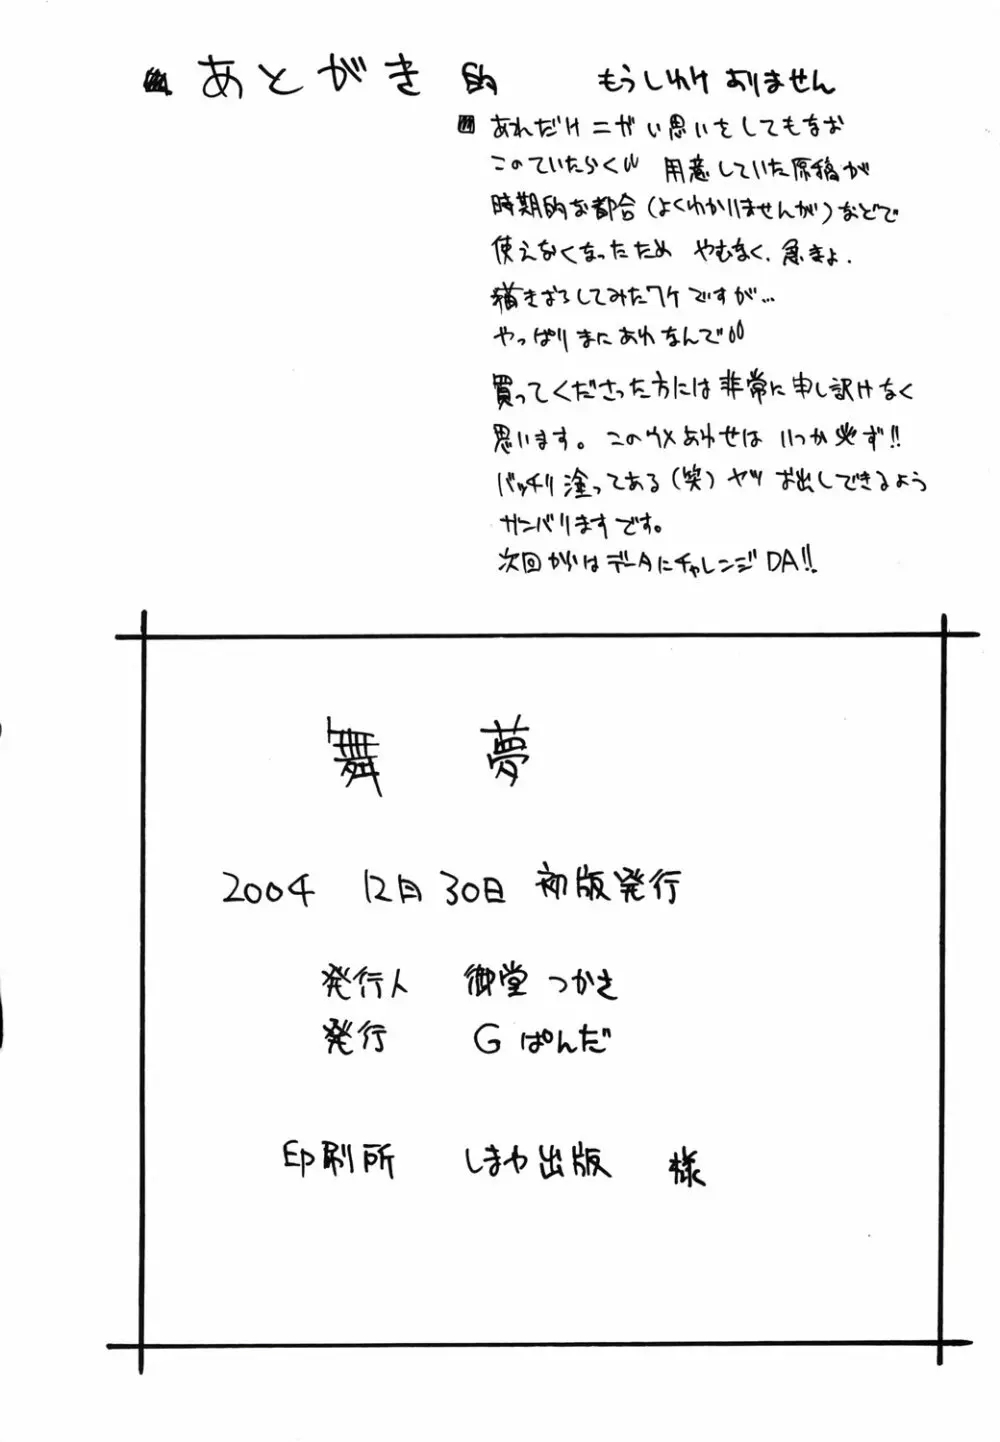 あとがき的 もうしわけありません
あれだけニガい思いをしてもなお
このていたらく 用意していた原稿が
時期的な都合(よくわかりませんが)などで
使えなくなったため やむなく、急きょ、
描きおろしてみたワケですが…
やっぱりまにあわなんで
買ってくださった方には非常に申し訳けなく
思います。このウメあわせは いつか必ず!!
バッチリ塗ってある(笑)ヤツ お出しできるよう
ガンバリますです。
次回からはデータにチャレンジDA!!
舞夢
2004 12月30日 初版発行
発行人 御堂つかさ
発行 Gぱんだ
印刷所 しまや出版 様